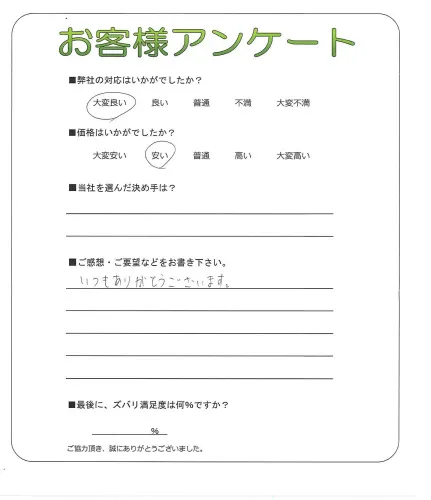 お客様アンケート
■弊社の対応はいかがでしたか？
大変良い 良い 普通 不満 大変不満
■価格はいかがでしたか？
大変安い 安い 普通 高い 大変高い
■当社を選んだ決め手は？
■ご感想・ご要望などをお書き下さい。
いつもありがとうございます。
■最後に、ズバリ満足度は何%ですか？
%
ご協力頂き、誠にありがとうございました。